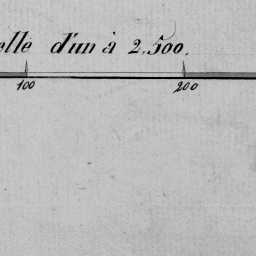 elle d'un à 2.500.
100 200